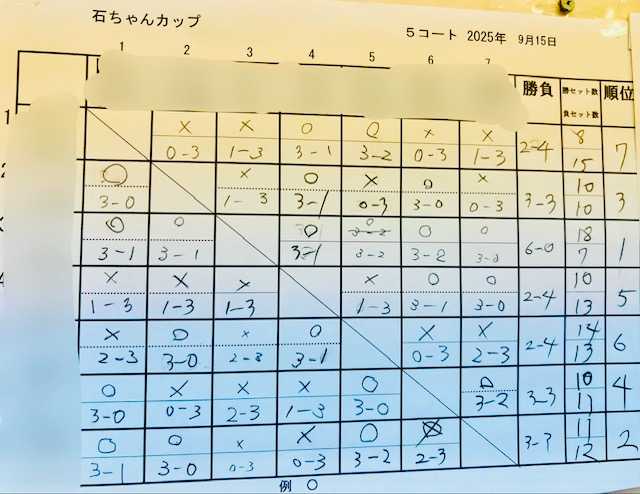 石ちゃんカップ
5コート 2025年 9月15日
1 2 3 4 5 6 7
勝負 勝セット数 負セット数 順位
1 × 0-3 × 1-3 ○ 3-1 ○ 3-2 × 0-3 × 1-3 2-4 8 15 7
2 ○ 3-0 × 1-3 ○ 3-1 × 0-3 ○ 3-0 × 0-3 3-3 10 10 3
○ 3-1 ○ 3-1 ○ 3-1 ○ 3-2 3-2 ○ 3-2 ○ 6-0 18 7 1
4 × 1-3 × 1-3 × 1-3 × 1-3 ○ 3-1 ○ 3-0 2-4 10 13 5
× 2-3 ○ 3-0 × 2-3 ○ 3-1 × 0-3 × 2-3 2-4 14 13 6
○ 3-0 × 0-3 × 2-3 × 1-3 ○ 3-0 ○ 3-2 3-3 10 11 4
○ 3-1 ○ 3-0 × 0-3 × 0-3 ○ 3-2 × 2-3 3-3 11 12 2
例 ○